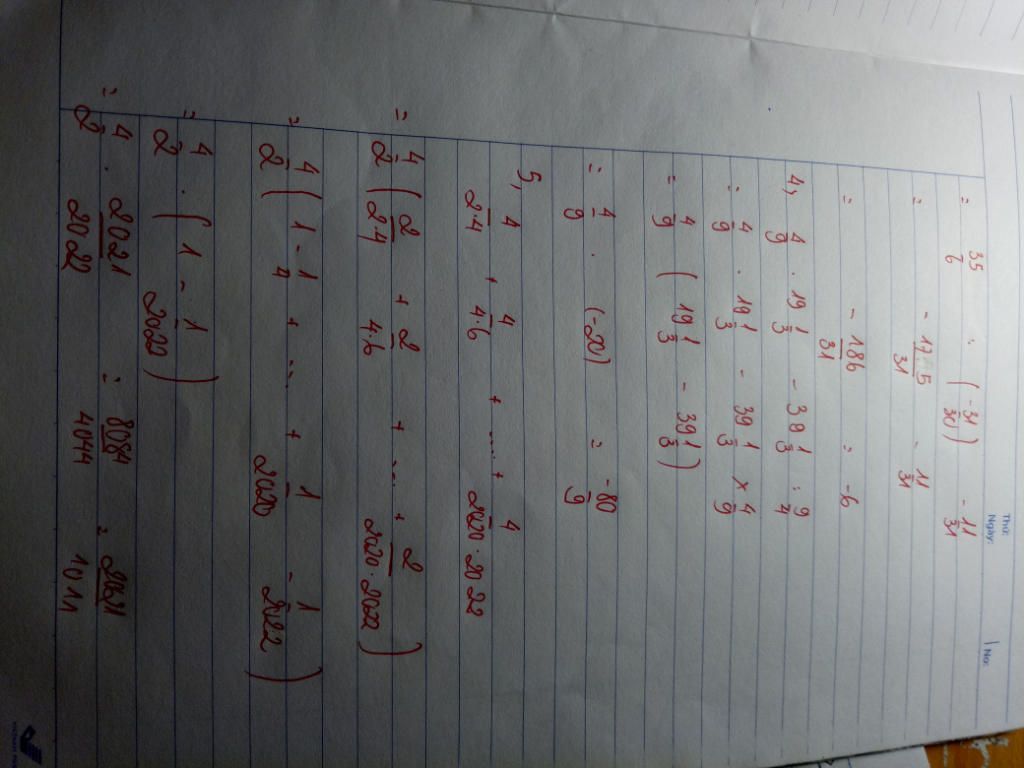 Thứ:
Ngày: No:
= 35/6 : (-31/30) - 11/31
= - 175/31 - 11/31
= - 186/31 = -6
4, 4/9 . 19 1/3 - 39 1/3 : 9/4
= 4/9 . 19 1/3 - 39 1/3 x 4/9
= 4/9 ( 19 1/3 - 39 1/3 )
= 4/9 . (-20) = -80/9
5, 4/2.4 + 4/4.6 + ..... + 4/2020.2022
= 4/2 ( 2/2.4 + 2/4.6 + .... + 2/2020.2022 )
= 4/2 ( 1 - 1/4 + ... + 1/2020 - 1/2022 )
= 4/2 . ( 1 - 1/2022 )
= 4/2 . 2021/2022 = 8084/4044 = 2021/1011